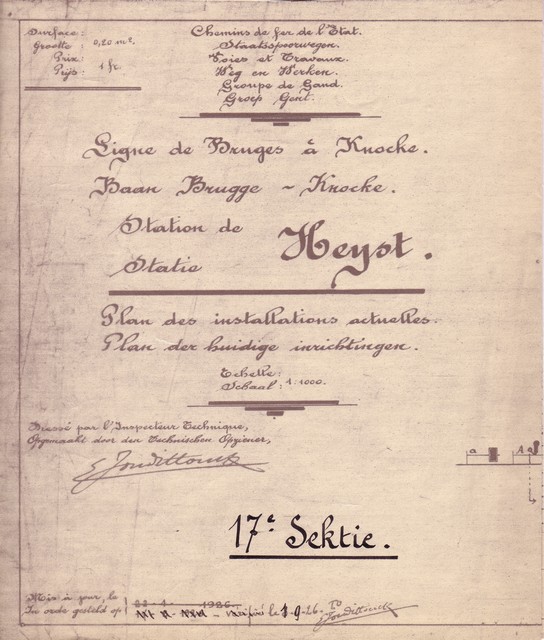 Surface:
Grootte: 0,20 m².
Prix:
Prijs: 1 fr.
Chemins de fer de l'Etat.
Staatsspoorwegen.
Voies et Travaux.
Weg en Werken.
Groupe de Gand.
Groep Gent.
Ligne de Bruges à Knocke.
Baan Brugge - Knocke.
Station de
Statie
Heyst.
Plan des installations actuelles.
Plan der huidige inrichtingen.
Echelle:
Schaal: 1:1000.
Dressé par l'Inspecteur Technique,
Opgemaakt door den Technischen Opziener,
a
17e Sektie.
Mis à jour, le
In orde gesteld op
1926
le 1-9-26